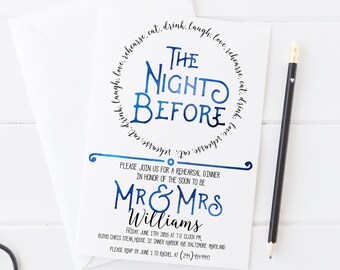 eat, drink, laugh, love, rehearse, eat, drink, laugh, love, rehearse, eat, drink, laugh, love, rehearse,
THE
NIGHT
BEFORE
PLEASE JOIN US FOR A REHEARSAL DINNER
IN HONOR OF THE SOON TO BE
MR & MRS
Williams
FRIDAY JUNE 17TH 2015 AT 7 O CLOCK PM
RUTHS CHRIS STEAK HOUSE, 32 INNER HARBOR AVE BALTIMORE MARYLAND
PLEASE RSVP BY JUNE 1 TO RACHEL AT